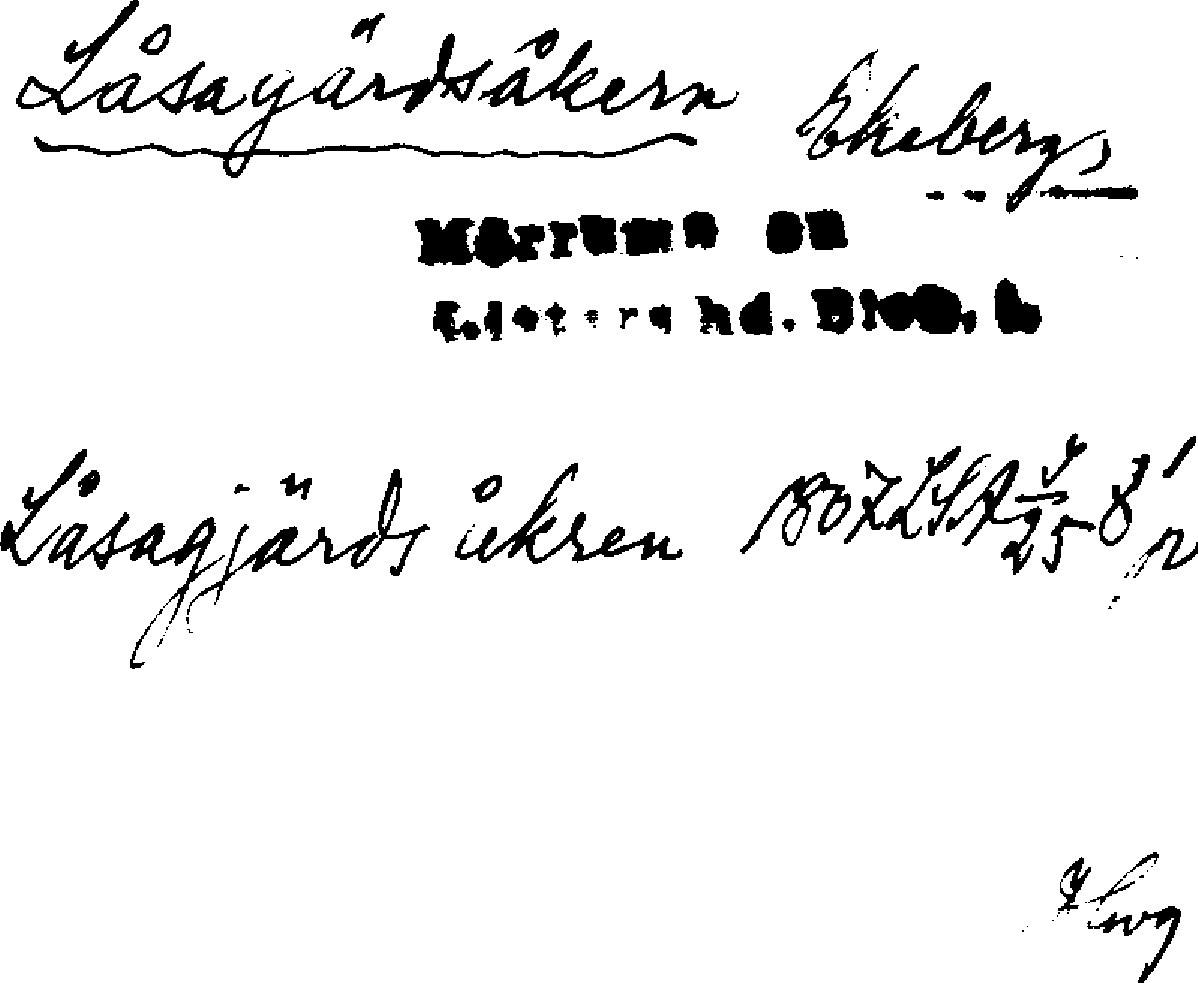 Låsagärdsåkern Ekeberg,
Mörrums sn
Listers hd. Blek. l.
Låsagjärds åkren 1807 LSA 25 8